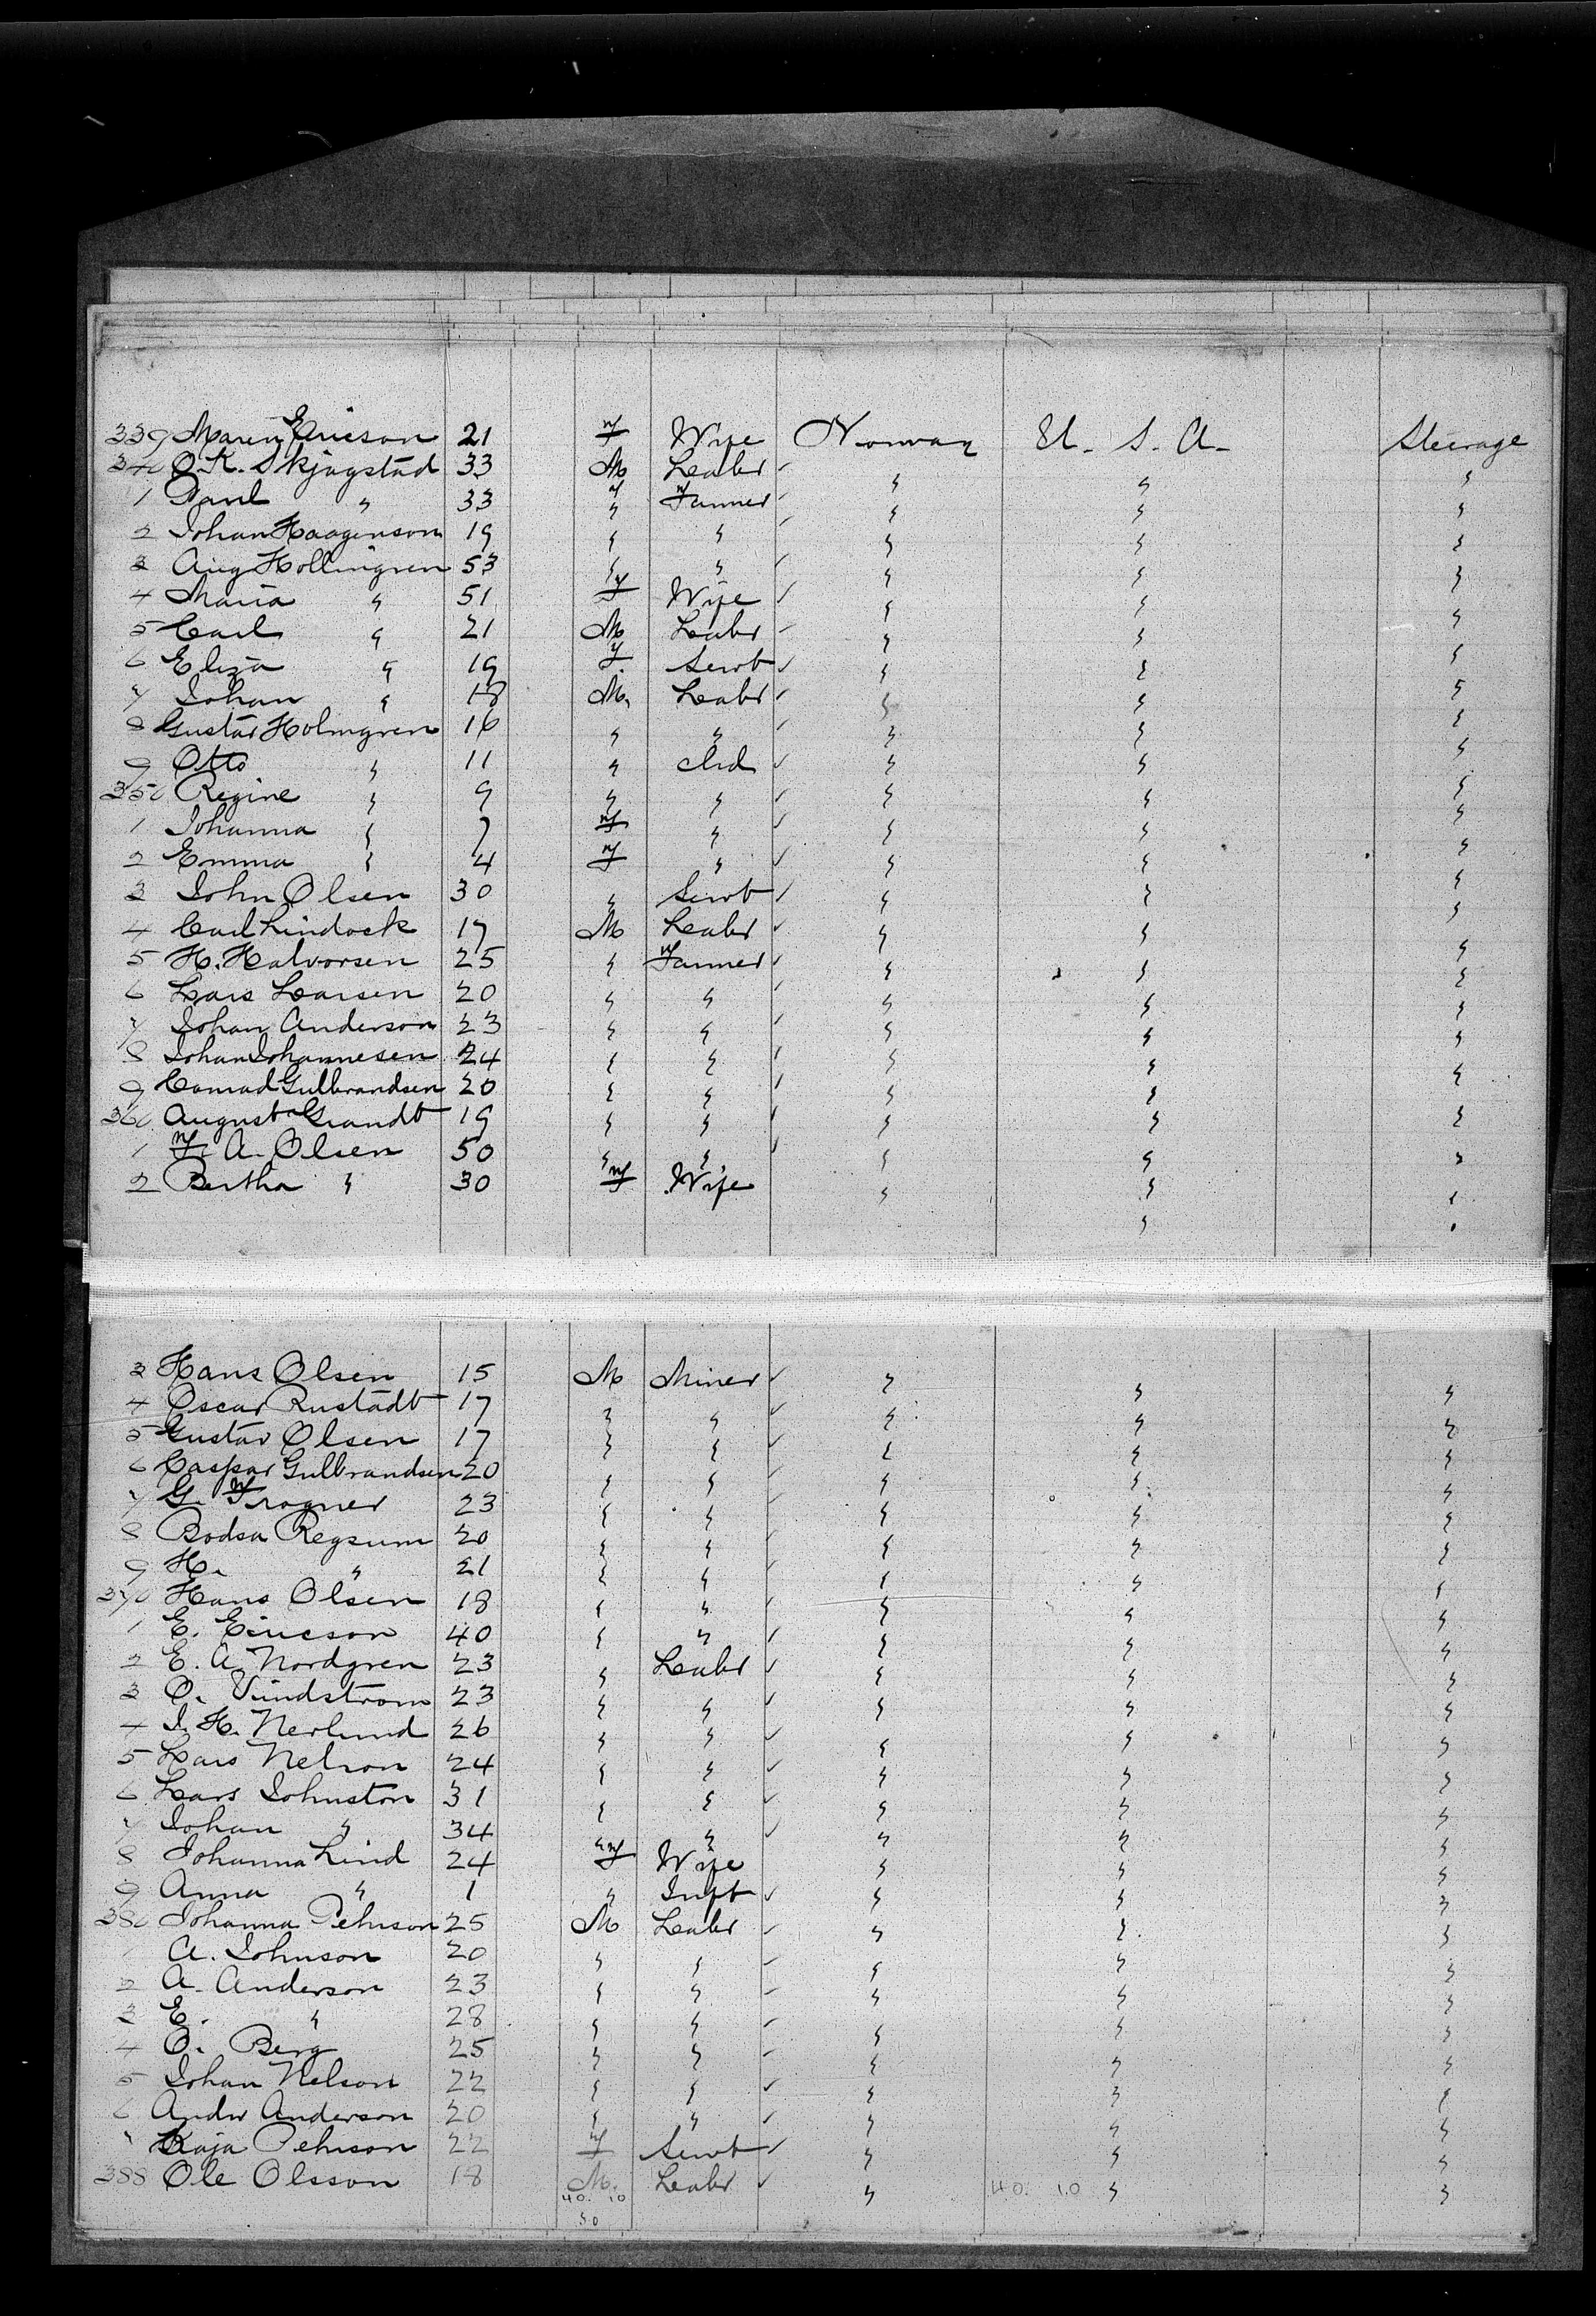 339 Maren Ericson 21 F Wife Norway U. S. A. Steerage
340 O. K. Skjagstad 33 M Labr " " "
1 Paul " 33 " Farmer " " "
2 Johan Haagenson 19 " " " " "
3 Aug Hollingren 53 " " " " "
4 Maria " 51 F Wife " " "
5 Carl " 21 M Labr " " "
6 Eliza " 19 F Servt " " "
7 Johan " 18 M. Labr " " "
8 Gustav Holmgren 16 " " " " "
9 Otto " 11 " Chd " " "
350 Regine " 9 " " " " "
1 Johanna " 7 F " " " "
2 Emma " 4 F " " " "
3 John Olsen 30 " Servt " " "
4 Carl Lindock 17 M Labr " " "
5 H. Halvorsen 25 " Farmer " " "
6 Lars Larsen 20 " " " " "
7 Johan Anderson 23 " " " " "
8 Johan Johannesen 24 " " " " "
9 Conrad Gulbrandsen 20 " " " " "
360 August Grandt 19 " " " " "
1 F. A. Olsen 50 " " " " "
2 Bertha " 30 F Wife " " "
3 Hans Olsen 15 M Miner " " "
4 Oscar Rustadt 17 " " " " "
5 Gustav Olsen 17 " " " " "
6 Caspar Gulbrandsen 20 " " " " "
7 G. Frogner 23 " " " " "
8 Bodsa Regsum 20 " " " " "
9 H. " 21 " " " " "
370 Hans Olsen 18 " " " " "
1 E. Ericson 40 " " " " "
2 E. A. Nordgren 23 " Labr " " "
3 O. Vindstrom 23 " " " " "
4 J. H. Nerlund 26 " " " " "
5 Lars Nelson 24 " " " " "
6 Lars Johnston 31 " " " " "
7 Johan " 34 " " " " "
8 Johanna Lind 24 F Wife " " "
9 Anna " 1 " Inft " " "
380 Johanna Pehrson 25 M Labr " " "
1 A. Johnson 20 " " " " "
2 A. Anderson 23 " " " " "
3 E. " 28 " " " " "
4 O. Berg 25 " " " " "
5 Johan Nelson 22 " " " " "
6 Andw Anderson 20 " " " " "
7 Kaja Pehrson 22 F Servt " " "
388 Ole Olsson 18 M. Labr " " "
40. 10 40. 10
50